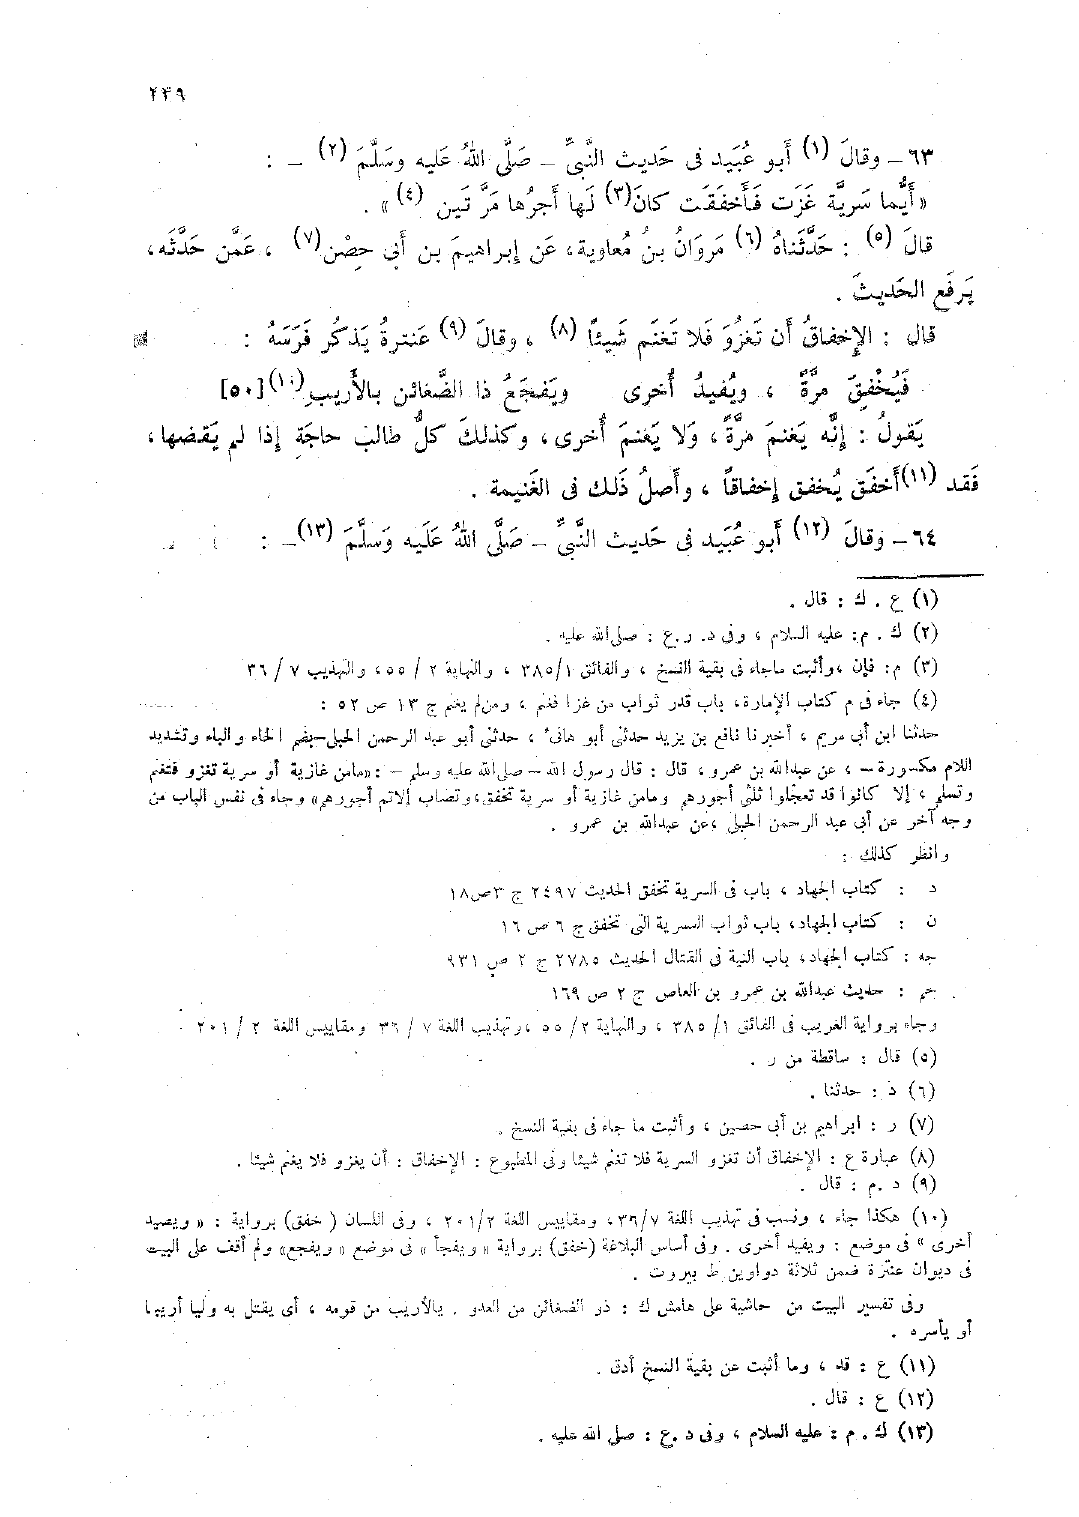 ٢٤٩
٦٣ – وقالَ (١) أَبو عُبَيد فى حَديث النَّبىِّ – صَلَّى اللهُ عَليه وسَلَّمَ (٢) – :
« أَيُّما سَريَّة غَزَت فَأَخفَقَت كانَ(٣) لَها أَجرُها مَرَّ تَين (٤) » .
قالَ (٥) : حَدَّثَناهُ (٦) مَروَانُ بنُ مُعاوية، عَن إبراهيمَ بن أَبى حِصْن(٧) ، عَمَّن حَدَّثَه،
يَرفَع الحَديثَ .
قال : الإِخفاقُ أَن تَغزُوَ فَلا تَغنَم شَيئاً (٨) ، وقالَ (٩) عَنترةُ يَذكُر فَرَسَهُ :
فَيُخْفِقَ مرَّةً ، ويُفيدُ أُخرى ويَفجَعُ ذا الضَّغائن بالأَريبِ(١٠) [٥٠]
يَقولُ : إنَّه يَغنمَ مرَّةً ، وَلا يَغنمَ أُخرى ، وكذلكَ كلُّ طالب حاجَةٍ إذا لم يَقضها،
فَقد (١١)أَخفَق يُخفق إخفاقاً ، وأَصلُ ذَلك فى الغَنيمة .
٦٤ – وَقالَ (١٢) أَبو عُبَيد فى حَديث النَّبىِّ – صَلَّى اللهُ عَلَيه وَسَلَّمَ (١٣)– :
(١) ع . ك : قال .
(٢) ك . م : عليه السلام ، وفى د. ر.ع : صلى الله عليه .
(٣) م: فإن ،وأثبت ماجاء فى بقية النسخ ، والفائق ٣٨٥/١ ، والنهاية ٢ / ٥٥، والتهذيب ٧ / ٣٦
(٤) جاء فى م كتاب الإمارة، باب قدر ثواب من غزا فغنم ، ومن لم يغنم ج ١٣ ص ٥٢ :
حدثنا ابن أبى مريم ، أخبرنا نافع بن يزيد حدثنى أبو هانىء ، حدثنى أبو عبد الرحمن الحبلى–بضم الحاء والباء وتشديد
اللام مكسورة – ، عن عبدالله بن عمرو ، قال : قال رسول الله – صلى الله عليه وسلم – : «مامن غازية أو سرية تغزو فتغنم
وتسلم ، إلا كانوا قد تعجلوا ثلثى أجورهم ومامن غازية أو سرية تخفق،وتصاب إلاتم أجورهم» وجاء فى نفس الباب من
وجه آخر عن أبى عبد الرحمن الحبلى ،عن عبدالله بن عمرو .
وانظر كذلك :
د : كتاب الجهاد ، باب فى السرية تخفق الحديث ٢٤٩٧ ج ٣ص١٨
ن : كتاب الجهاد، باب ثواب السرية التى تخفق ج ٦ ص ١٦
جه : كتاب الجهاد، باب النية فى القتال الحديث ٢٧٨٥ ج ٢ ص ٩٣١
حم : حديث عبدالله بن عمرو بن العاص ج ٢ ص ١٦٩
وجاء برواية الغريب فى الفائق ١/ ٣٨٥ ، والنهاية ٢/ ٥٥ ،وتهذيب اللغة ٧ / ٣٦ ومقاييس اللغة ٢ / ٢٠١
(٥) قال : ساقطة من ر .
(٦) د : حدثنا .
(٧) ر : ابراهيم بن أبى حصين ، وأثبت ما جاء فى بقية النسخ .
(٨) عبارة ع : الإخفاق أن تغزو السرية فلا تغنم شيئا وفى المطبوع : الإخفاق : أن يغزو فلا يغنم شيئا .
(٩) د .م : قال .
(١٠) هكذا جاء ، ونسب فى تهذيب اللغة ٣٦/٧، ومقاييس اللغة ٢٠١/٢ ، وفى اللسان ( خفق) برواية : « ويصيد
أخرى » فى موضع : ويفيد أخرى . وفى أساس البلاغة (خفق) برواية « ويفجأ » فى موضع « ويفجع» ولم أقف على البيت
فى ديوان عنترة ضمن ثلاثة دواوين ط بيروت .
وفى تفسير البيت من حاشية على هامش ك : ذو الضغائن من العدو . يالأريب من قومه ، أى يقتل به وليا أريبا
أو يأسره .
(١١) ع : قد ، وما أثبت عن بقية النسخ أدق .
(١٢) ع : قال .
(١٣) ك . م : عليه السلام ، وفى د .ع : صلى الله عليه .